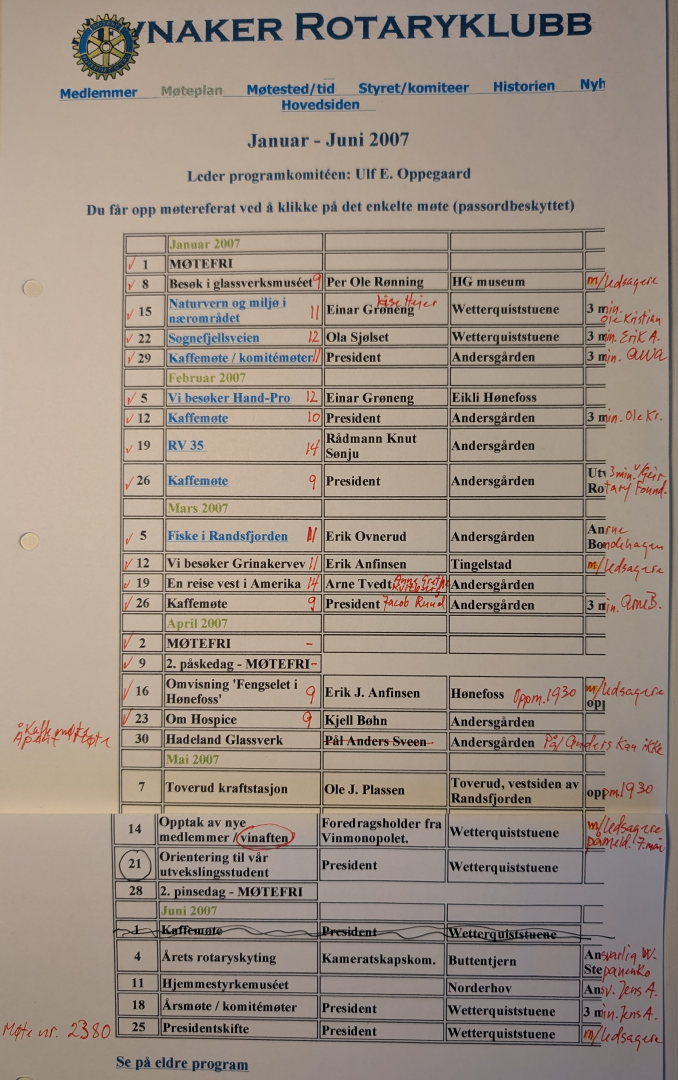 VNAKER ROTARYKLUBB
Medlemmer Møteplan Møtested/tid Styret/komiteer Historien Nyh
Hovedsiden
Januar - Juni 2007
Leder programkomitéen: Ulf E. Oppegaard
Du får opp møtereferat ved å klikke på det enkelte møte (passordbeskyttet)
Januar 2007
✓ 1 MØTEFRI
✓ 8 Besøk i glassverksmuséet 9 Per Ole Rønning HG museum m/ledsagere
✓ 15 Naturvern og miljø i nærområdet 11 Einar Grøneng Wetterquiststuene 3 min. Ole Kristian
✓ 22 Sognefjellsveien 12 Ola Sjølset Wetterquiststuene 3 min. Erik A.
✓ 29 Kaffemøte / komitémøter 11 President Andersgården 3 min.
Februar 2007
✓ 5 Vi besøker Hand-Pro 12 Einar Grøneng Eikli Hønefoss
✓ 12 Kaffemøte 10 President Andersgården 3 min. Ole Kr.
✓ 19 RV 35 14 Rådmann Knut Sønju Andersgården
✓ 26 Kaffemøte 9 President Andersgården 3 min. v/Geir Rotary Found.
Mars 2007
✓ 5 Fiske i Randsfjorden 11 Erik Ovnerud Andersgården Arne Bondehagen
✓ 12 Vi besøker Grinakervev 11 Erik Anfinsen Tingelstad m/ledsagere
✓ 19 En reise vest i Amerika 14 Arne Tvedt Andersgården
✓ 26 Kaffemøte 9 President Jacob Ruud Andersgården 3 min. Arne B.
April 2007
✓ 2 MØTEFRI -
✓ 9 2. påskedag - MØTEFRI -
✓ 16 Omvisning 'Fengselet i Hønefoss' 9 Erik J. Anfinsen Hønefoss Oppm. 1930 m/ledsagere opp
✓ 23 Om Hospice 9 Kjell Bøhn Andersgården
30 Hadeland Glassverk Pål Anders Sveen Andersgården Pål Anders kan ikke
Mai 2007
7 Toverud kraftstasjon Ole J. Plassen Toverud, vestsiden av Randsfjorden oppm 1930
14 Opptak av nye medlemmer / vinaften Foredragsholder fra Vinmonopolet. Wetterquiststuene m/ledsagere påmeld. 7. mai
21 Orientering til vår utvekslingsstudent President Wetterquiststuene
28 2. pinsedag - MØTEFRI
Juni 2007
1 Kaffemøte President Wetterquiststuene
4 Årets rotaryskyting Kameratskapskom. Buttentjern Ansvarlig W. Stepanenko
11 Hjemmestyrkemuséet Norderhov Ansv. Jens A.
18 Årsmøte / komitémøter President Wetterquiststuene 3 min. Jens A.
Møte nr. 2380 25 Presidentskifte President Wetterquiststuene m/ledsagere
Se på eldre program